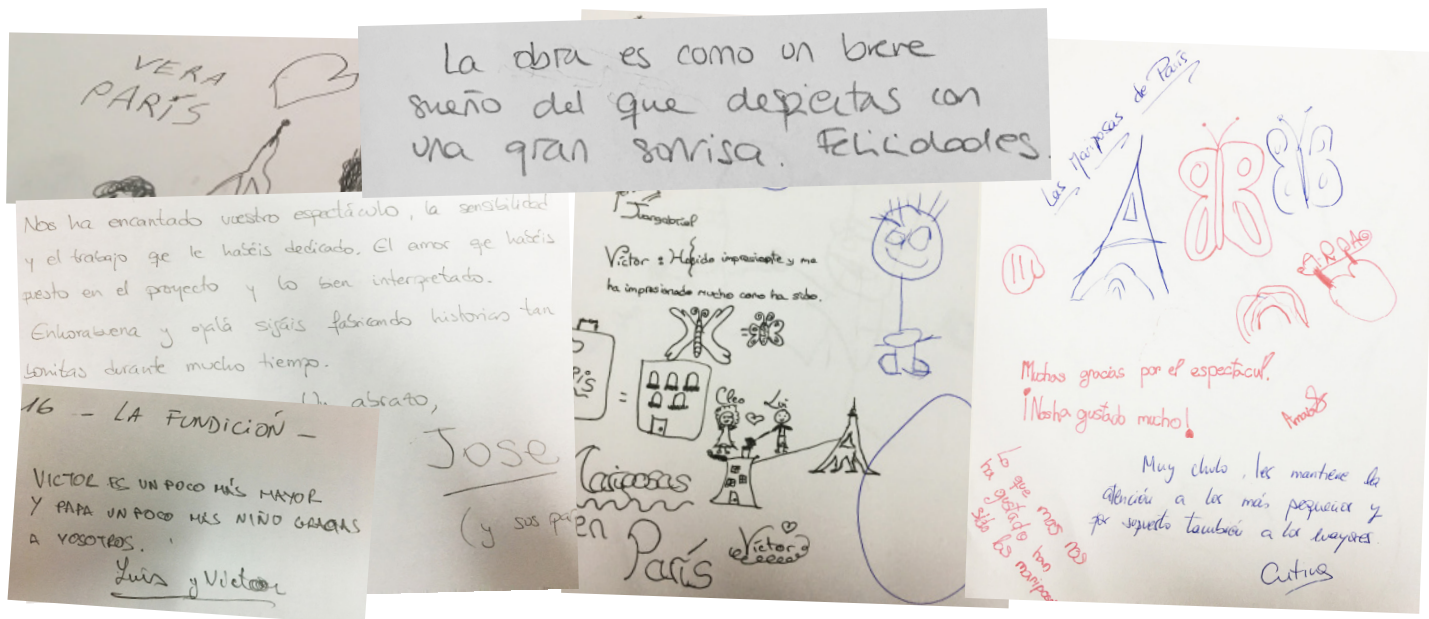 VERA
PARÍS
La obra es como un breve
sueño del que despiertas con
una gran sonrisa. Felicidades.
Nos ha encantado vuestro espectáculo, la sensibilidad
y el trabajo qe le habéis dedicado. El amor qe habéis
puesto en el proyecto y lo bien interpretado.
Enhorabuena y ojalá sigáis fabricando historias tan
bonitas durante mucho tiempo.
Un abrazo,
Jose
(y sus
16 - LA FUNDICIÓN -
VICTOR ES UN POCO MÁS MAYOR
Y PAPA UN POCO MÁS NIÑO GRACIAS
A VOSOTROS.
Luis y Victor
Juangabriel
Víctor: Ha sido impresionante y me
ha impresionado mucho como ha sido.
=
Cleo
Lu
Mariposas
en
París
Víctor
Las Mariposas de París
Muchas gracias por el espectácul.
¡Nos ha gustado mucho!
Lo que mas nos
ha gustado han
sido las mariposas
Muy chulo, les mantiene la
atención a los más pequeños y
por supuesto también a los mayores.